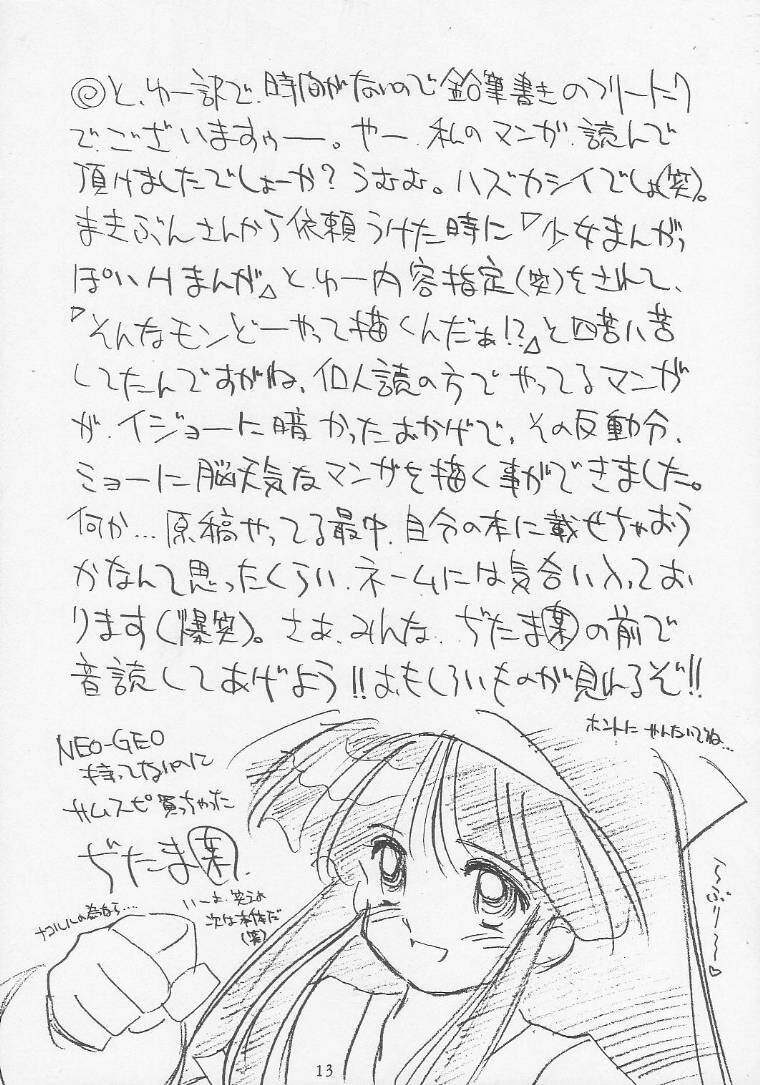 ◎と、ゆー訳で、時間がないので鉛筆書きのフリートーク
でございますぅー。やー、私のマンガ、読んで
頂けましたでしょーか?うむむ。ハズカシイでしょ(笑)。
まきぶんさんから依頼うけた時に『少女まんがっ
ぽいHまんが』と、ゆー内容指定(笑)をされて、
『そんなモンどーやって描くんだぁ!?』と四苦八苦
してたんですがね、個人誌の方でやってるマンガ
が、イジョーに暗かったおかげで、その反動分、
ミョーに脳天気なマンガを描く事ができました。
何か…原稿やってる最中、自分の本に載せちゃおう
かなんて思ったくらい、ネームには気合い入ってお
ります(爆笑)。さあ、みんな、ぢたま某の前で
音読してあげよう!!おもしろいものが見れるぞ!!
ホントに やんないでね…
NEO-GEO
持ってないのに
サムスピ買っちゃった
ぢたま某.
いーよ、笑うよ
次は本体だ
(笑)
ナコルルの為なら…
〜ぷりー〜♡
13